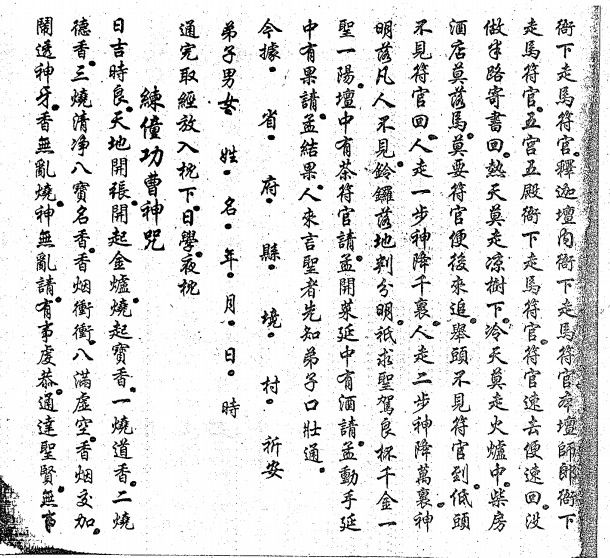 衙下走馬符官。釋迦壇內衙下走馬符官。本壇師郎衙下
走馬符官。五宫五殿衙下走馬符官。符官速去便速回。没
做半路寄書回。熱天莫走凉樹下。冷天莫走火爐中。柴房
酒店莫落馬。莫要符官便後來追。舉頭不見符官到。低頭
不見符官回。人走一步神降千裏。人走二步神降萬裏。神
明落凡人不見。鈴鑼落地判分明。祇求聖駕良杯千金一
聖一陽。壇中有茶符官請。孟開菜筵中有酒請。孟動手延
中有果請。孟結果。人來言聖者先知弟子口壯通。
今據。省。府。縣。境。村。祈安
弟子男女。姓。名。年。月。日。時
通完取經放入枕下。日學。夜枕
練僮功曹神咒
日吉時良。天地開張。開起金爐。燒起寶香。一燒道香。二燒
德香。三燒清净八寶名香。香烟衝衝。八滿虛空。香烟交加。
鬧透神牙。香無亂燒。神無亂請。有事虔恭。通達聖賢。無事